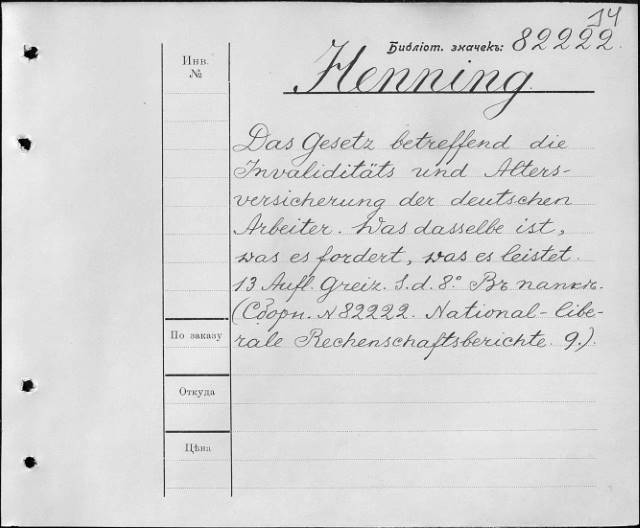 14
Библіот. значекъ: 82222.
Инв.
№
Henning.
Das Gesetz betreffend die
Invaliditäts und Alters-
versicherung der deutschen
Arbeiter. Was dasselbe ist,
was es fordert, was es leistet.
13 Aufl. Greiz. S. d. 8°. Въ папкѣ.
(Сборн. № 82222. National-libe-
rale Rechenschaftsberichte. 9.).
По заказу
Откуда
Цѣна